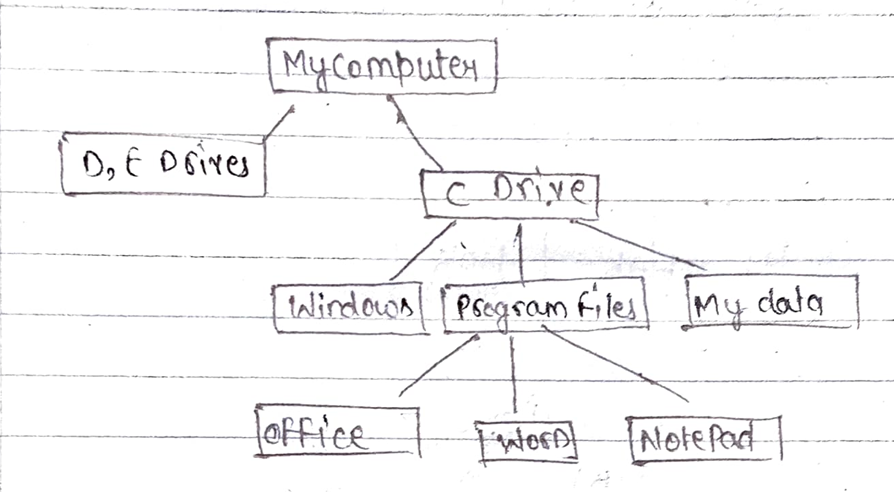 My Computer
D, E Drives
C Drive
Windows Program Files My data
Office Word NotePad